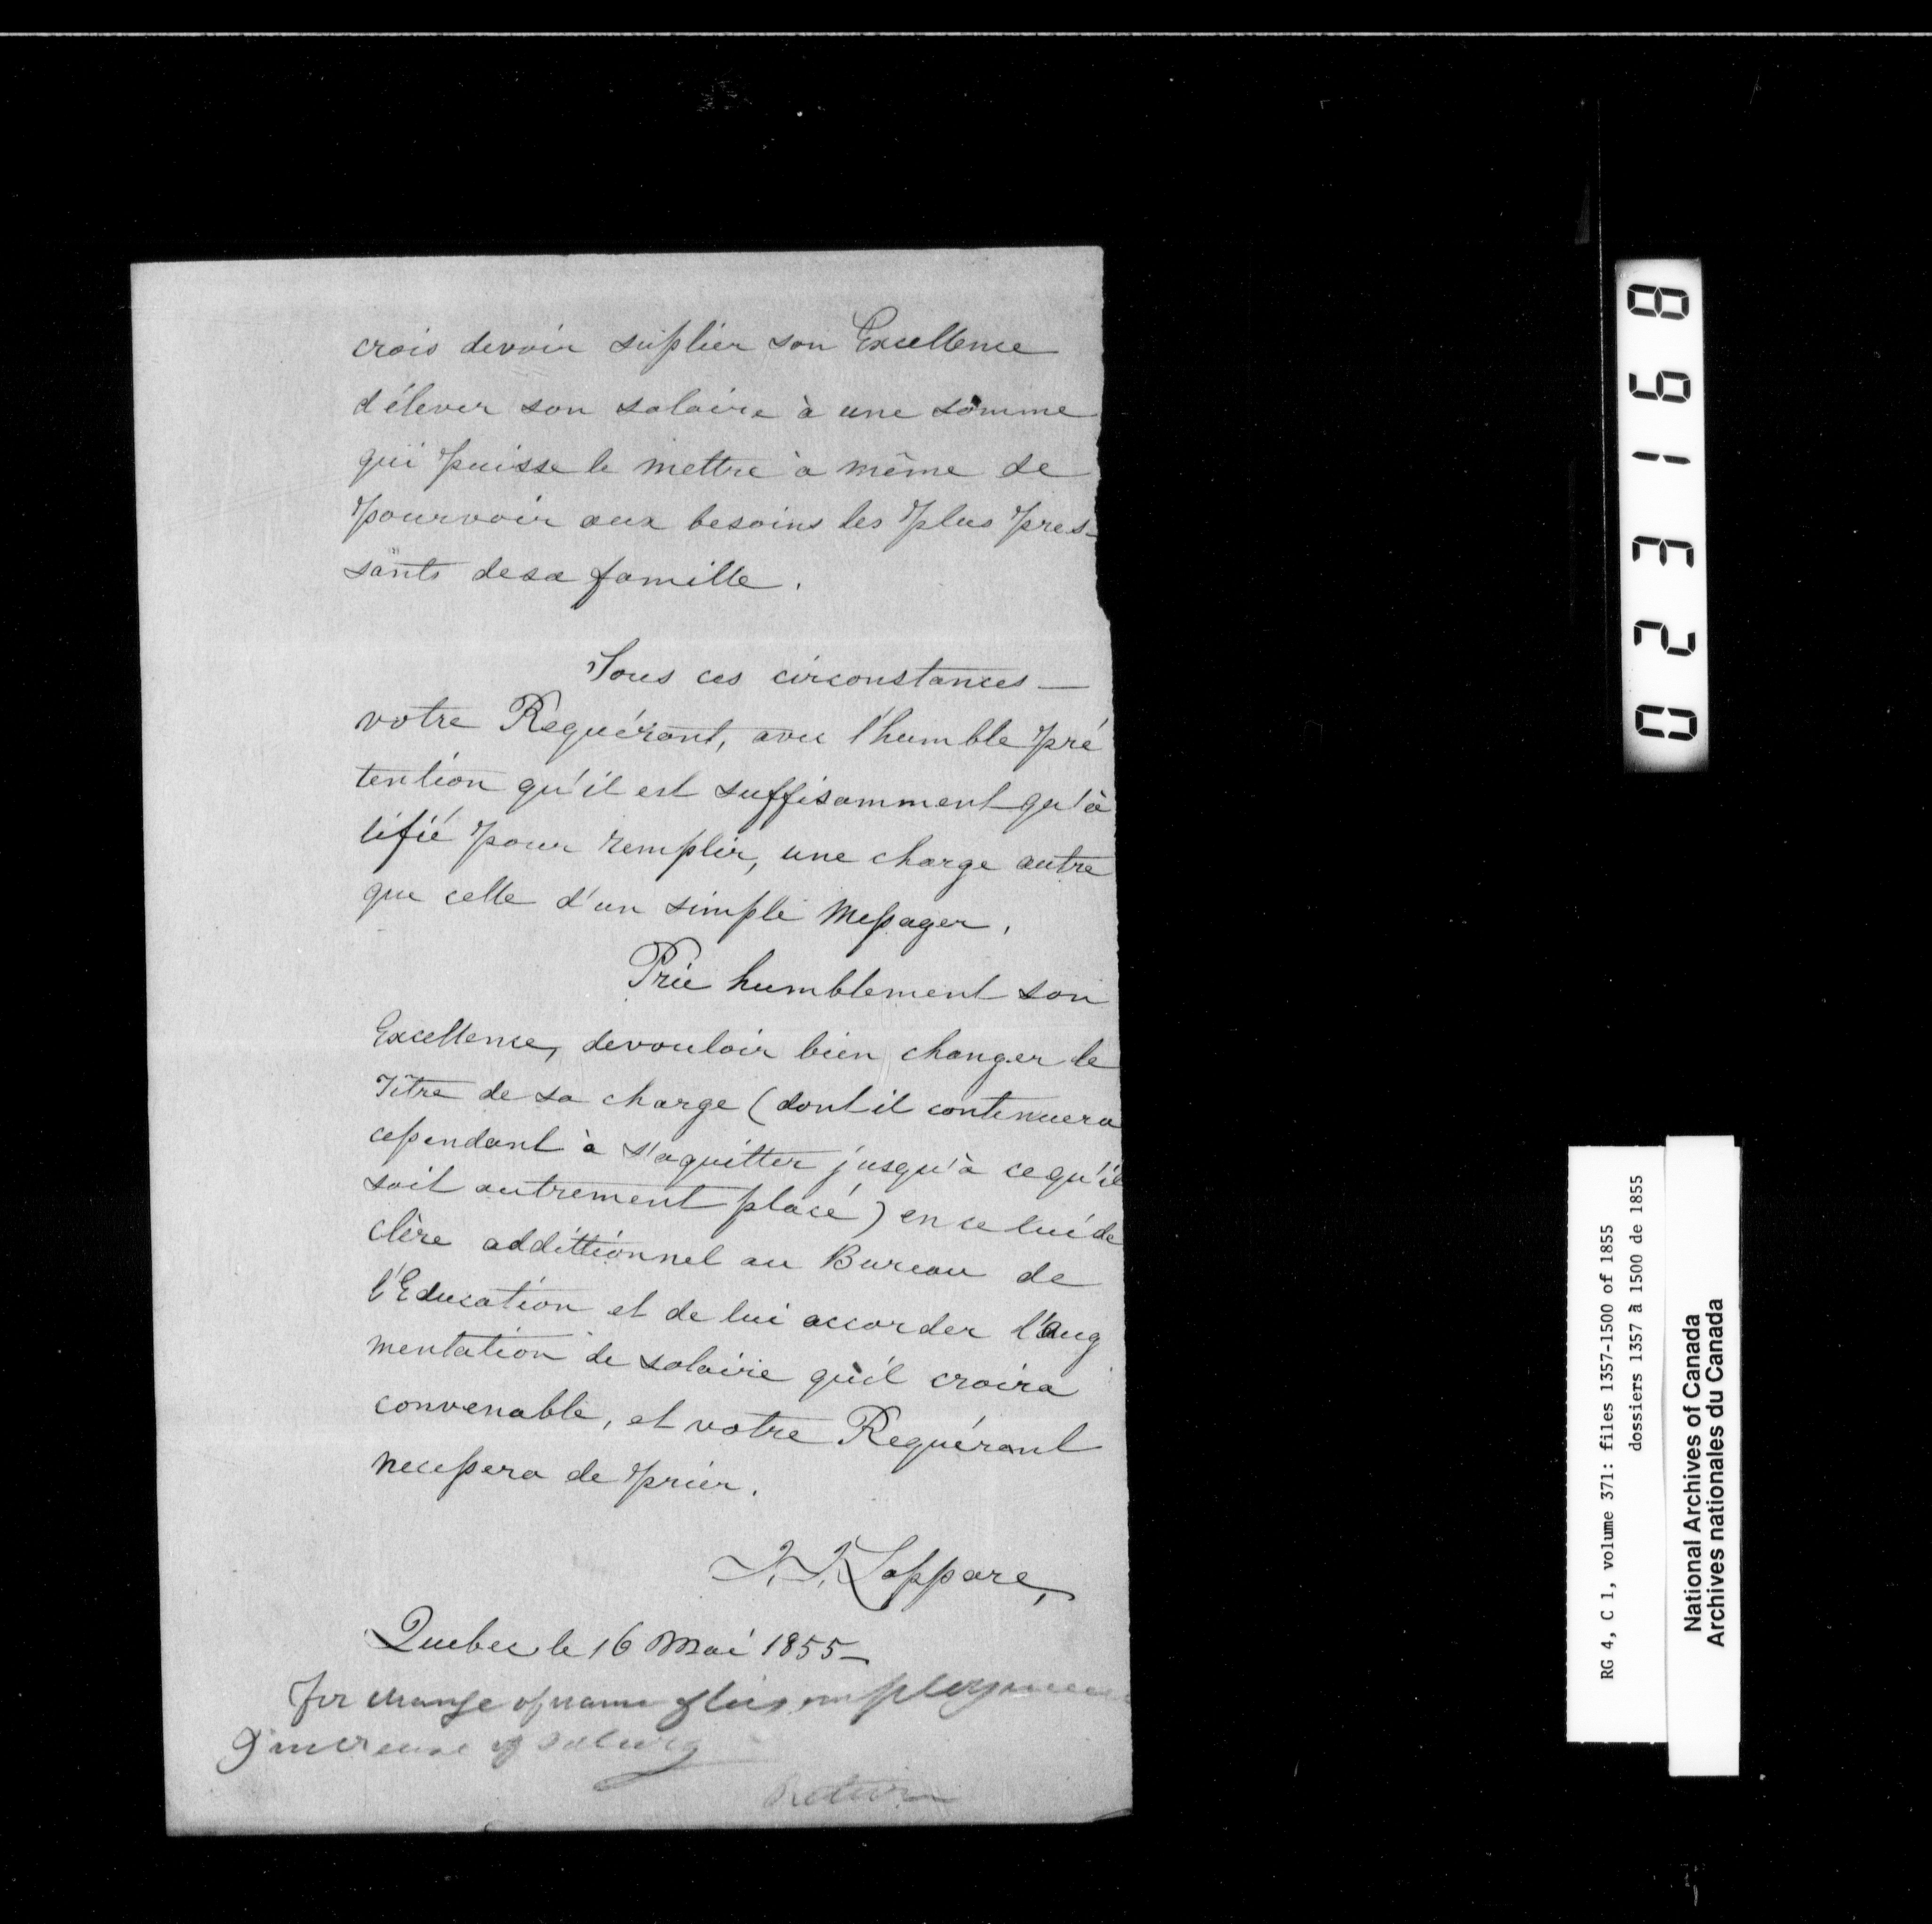 crois devoir suplier son Excellence
d'élever son salaire à une somme
qui puisse le mettre à même de
pourvoir aux besoins les plus pres-
sants de sa famille.
Sous ces circonstances —
votre Requérant, avec l'humble pré
tention qu'il est suffisamment qu'a
lifié pour remplir, une charge autre
que celle d'un simple Messager,
Prie humblement son
Excellence, de vouloir bien changer le
Titre de sa charge (dont il continuera
cependant à s'aquitter jusqu'à ce qu'il
soit autrement placé) en celui de
clerc addittionnel au Bureau de
l'Education et de lui accorder l'aug
mentation de salaire qu'il croira
convenable, et votre Requérant
necessera de prier.
J. J. Lappare,
Quebec le 16 Mai 1855 —
for change of name of his employment
& increase of salary
0 2 3 1 6 8
RG 4, C 1, volume 371: files 1357-1500 of 1855
dossiers 1357 à 1500 de 1855
National Archives of Canada
Archives nationales du Canada